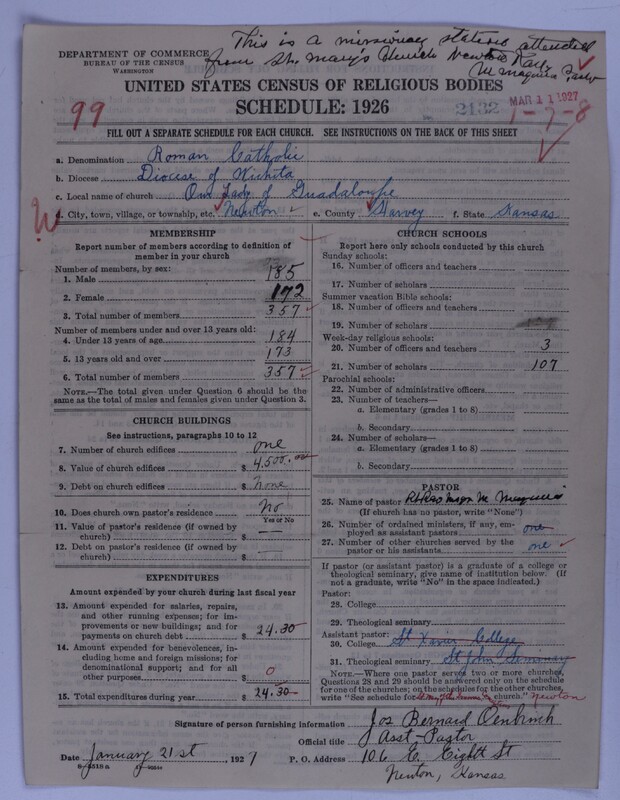 This is a missionary station attended
from St. Mary's Church Newton Kans.
M. Maguire Pastor
DEPARTMENT OF COMMERCE
BUREAU OF THE CENSUS
WASHINGTON
UNITED STATES CENSUS OF RELIGIOUS BODIES
SCHEDULE: 1926
99
2132
MAR 11 1927
1-7-8
FILL OUT A SEPARATE SCHEDULE FOR EACH CHURCH. SEE INSTRUCTIONS ON THE BACK OF THIS SHEET
a. Denomination Roman Catholic
b. Diocese Diocese of Wichita
c. Local name of church Our Lady of Guadaloupe
d. City, town, village, or township, etc. Newton e. County Harvey f. State Kansas
W
MEMBERSHIP
Report number of members according to definition of
member in your church
Number of members, by sex:
1. Male 185
2. Female 172
3. Total number of members 357
Number of members under and over 13 years old:
4. Under 13 years of age 184
5. 13 years old and over 173
6. Total number of members 357
NOTE.—The total given under Question 6 should be the
same as the total of males and females given under Question 3.
CHURCH BUILDINGS
See instructions, paragraphs 10 to 12
7. Number of church edifices one
8. Value of church edifices $ 4,500.00
9. Debt on church edifices $ None
10. Does church own pastor's residence No
Yes or No
11. Value of pastor's residence (if owned by
church) $ —
12. Debt on pastor's residence (if owned by
church) $ —
EXPENDITURES
Amount expended by church during last fiscal year
13. Amount expended for salaries, repairs,
and other running expenses; for im-
provements or new buildings; and for
payments on church debt $ 24.30
14. Amount expended for benevolences, in-
cluding home and foreign missions; for
denominational support; and for all
other purposes $ 0
15. Total expenditures during year $ 24.30
CHURCH SCHOOLS
Report here only schools conducted by this church
Sunday schools:
16. Number of officers and teachers
17. Number of scholars
Summer vacation Bible schools:
18. Number of officers and teachers
19. Number of scholars
Week-day religious schools:
20. Number of officers and teachers 3
21. Number of scholars 107
Parochial schools:
22. Number of administrative officers
23. Number of teachers—
a. Elementary (grades 1 to 8)
b. Secondary
24. Number of scholars—
a. Elementary (grades 1 to 8)
b. Secondary
PASTOR
25. Name of pastor Rt Rev Msgr M. Maguire
(If church has no pastor, write "None")
26. Number of ordained ministers, if any, em-
ployed as assistant pastors one
27. Number of other churches served by the
pastor or his assistants one
If pastor (or assistant pastor) is a graduate of a college or
theological seminary, give name of institution below. (If
not a graduate, write "No" in the space indicated.)
Pastor:
28. College
29. Theological seminary
Assistant pastor:
30. College St Xavier College
31. Theological seminary St John Seminary
NOTE.—Where one pastor serves two or more churches,
Questions 28 and 29 should be answered only on the schedule
for one of the churches; on the schedules for the other churches,
write "See schedule for church." Newton
Signature of person furnishing information Jos Bernard
Official title Asst-Pastor
Date January 21st, 1927 P. O. Address 106 E. Eighth St
Newton, Kansas
6-8518a